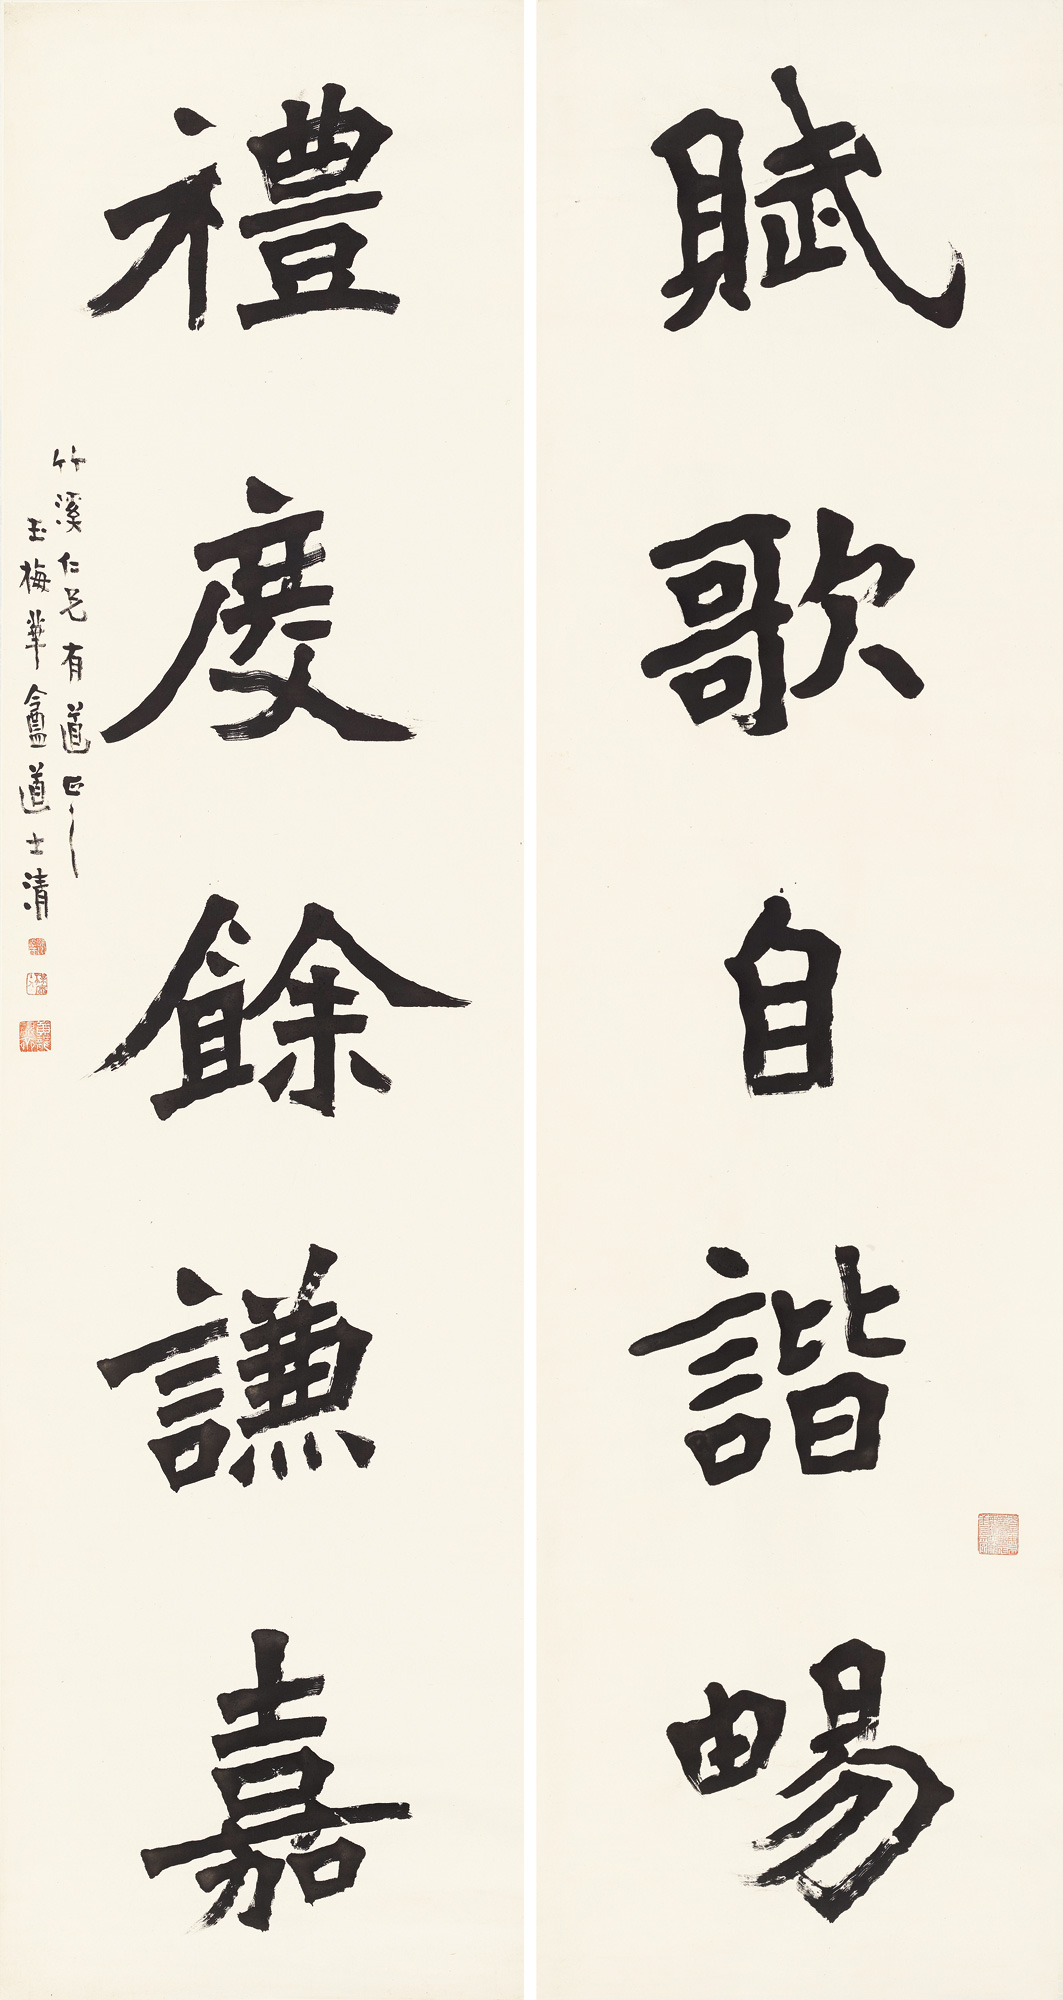 賦歌自諧暢
禮度餘謙嘉
竹溪仁兄有道正之
玉梅華盦道士清